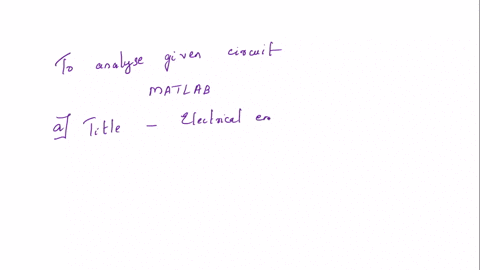 To analyse given circuit
MATLAB
a] Title - Electrical en